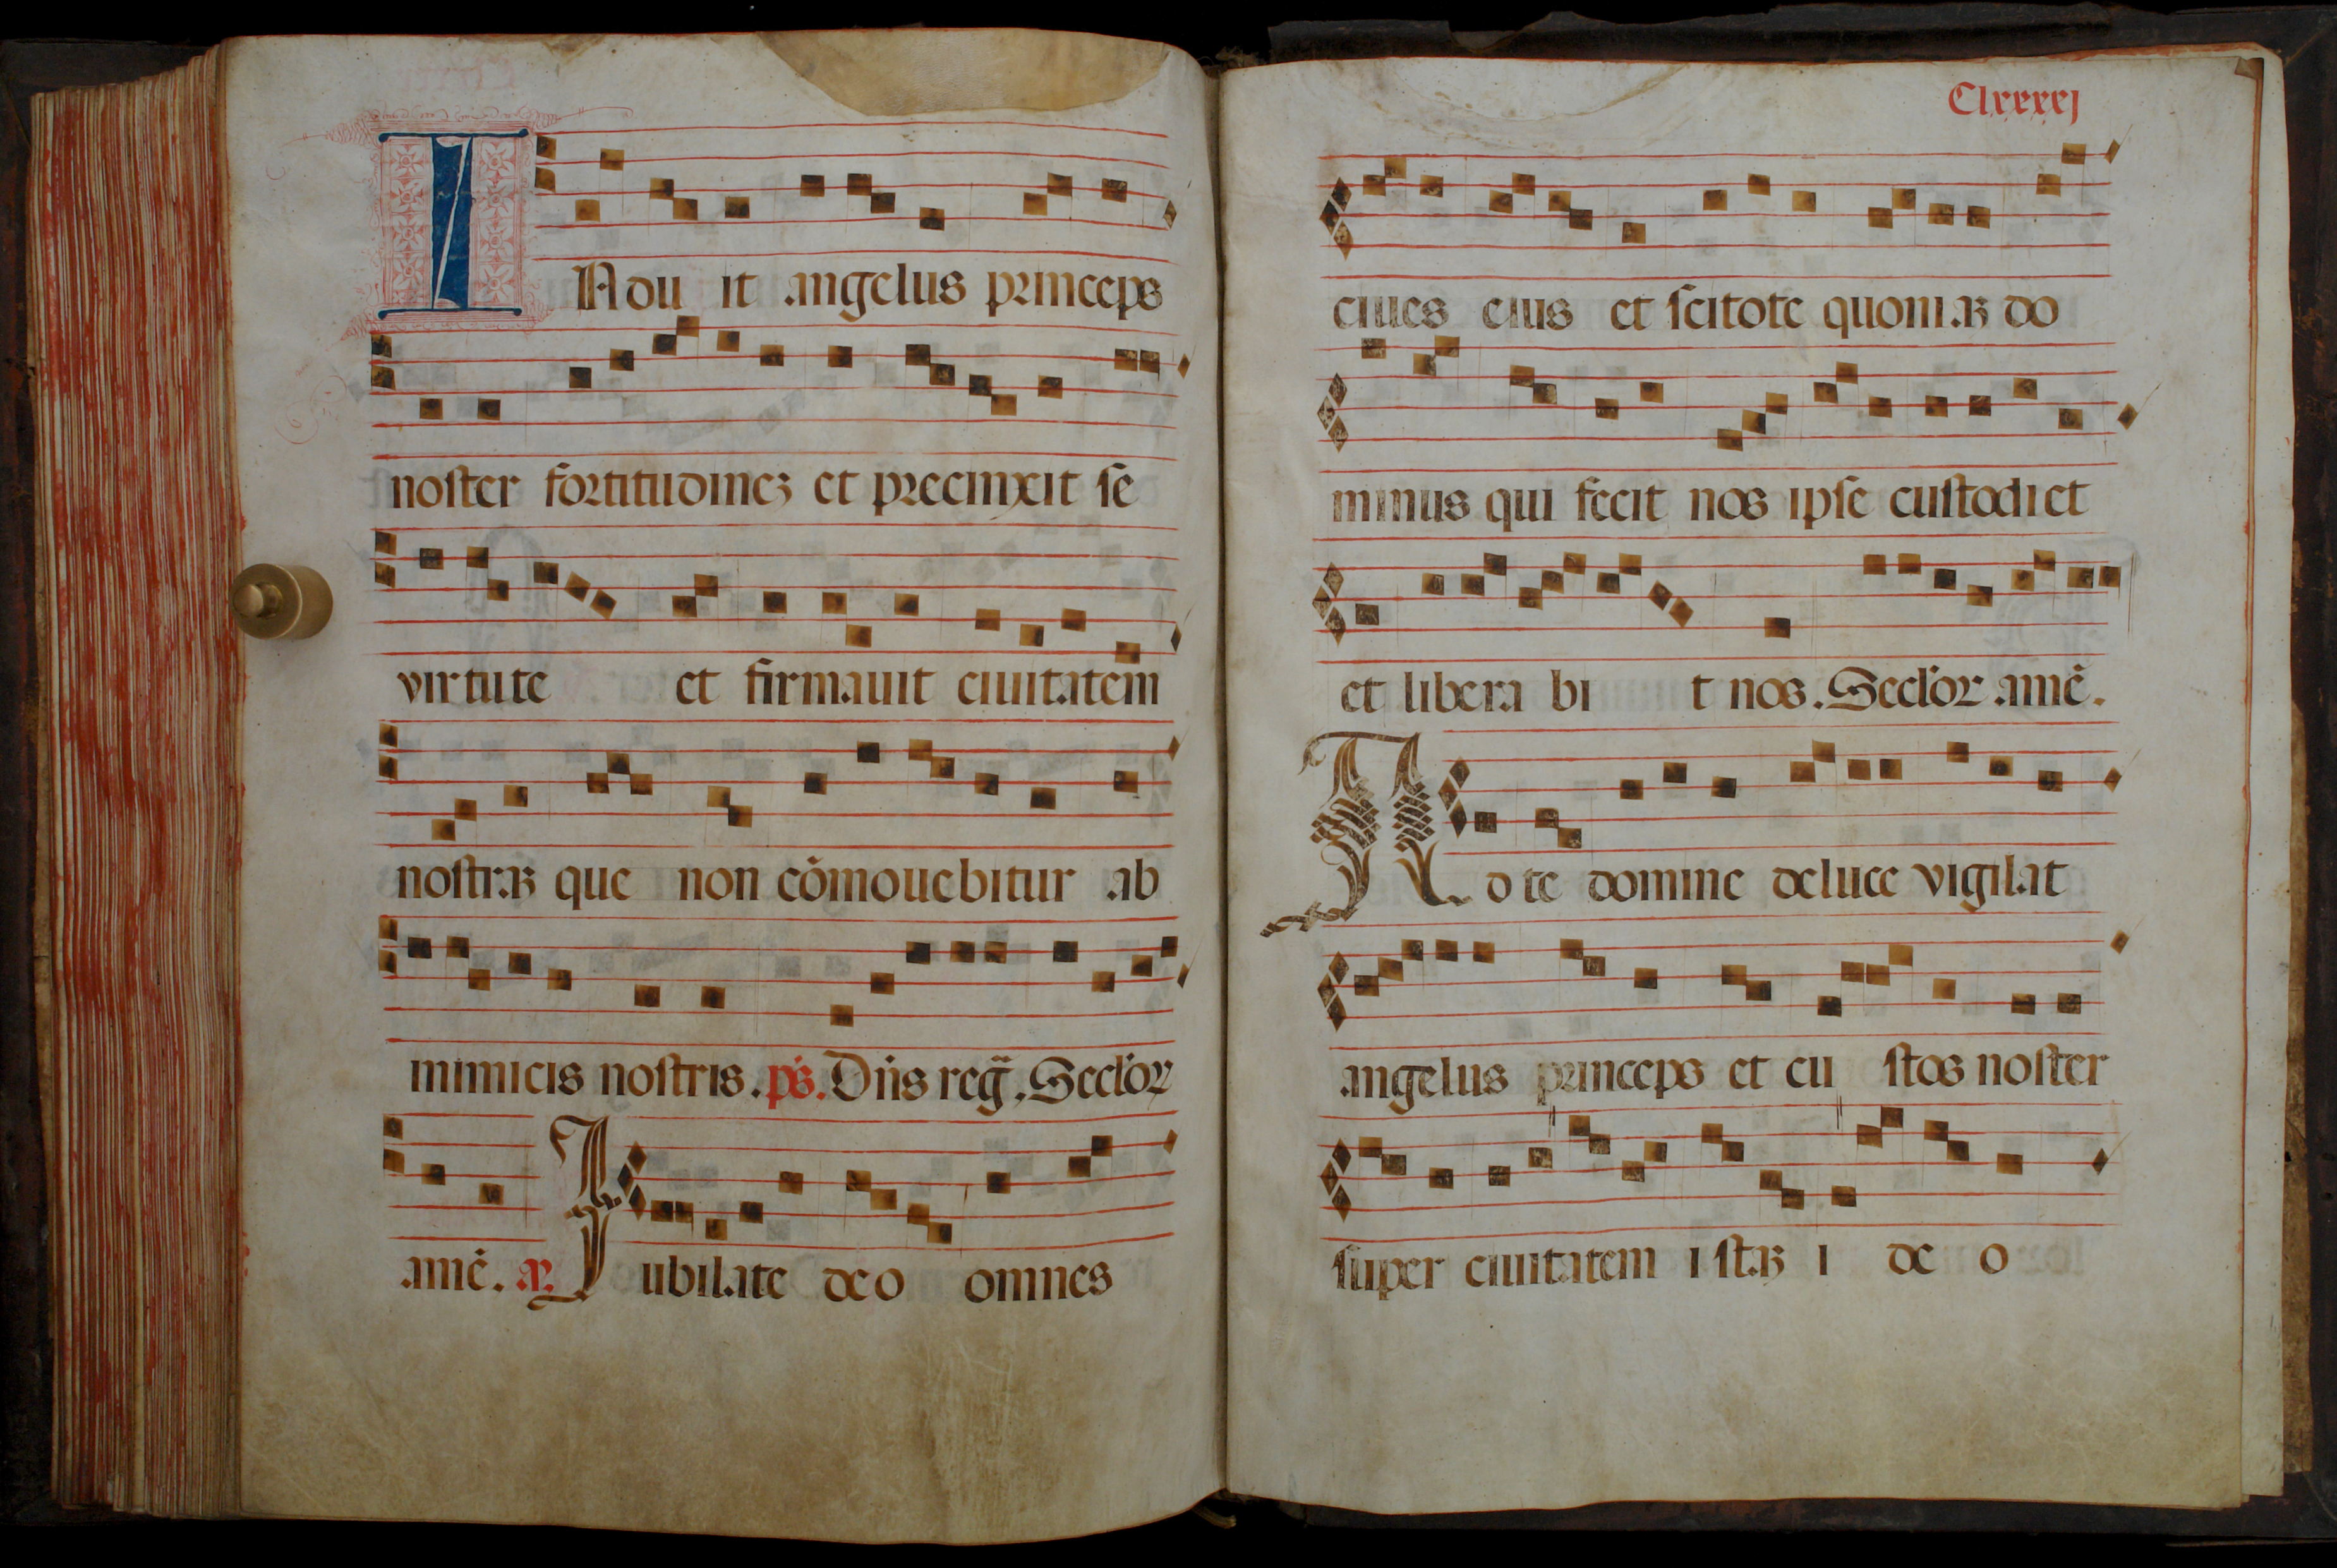 INdu it angelus princeps
noster fortitudinez et precinxit se
virtute et firmauit ciuitatem
nostraʒ que non cōmouebitur ab
inimicis nostris. ps. Dñs reg̃. Secl'or
amē. aʒ. Jubilate deo omnes
Clxxxxj
ciues eius et scitote quoniaʒ do
minus qui fecit nos ipse custodiet
et libera bi t nos. Secl'or amē.
Ad te domine deluce vigilat
angelus princeps et cu stos noster
super ciuitatem i staʒ i de o